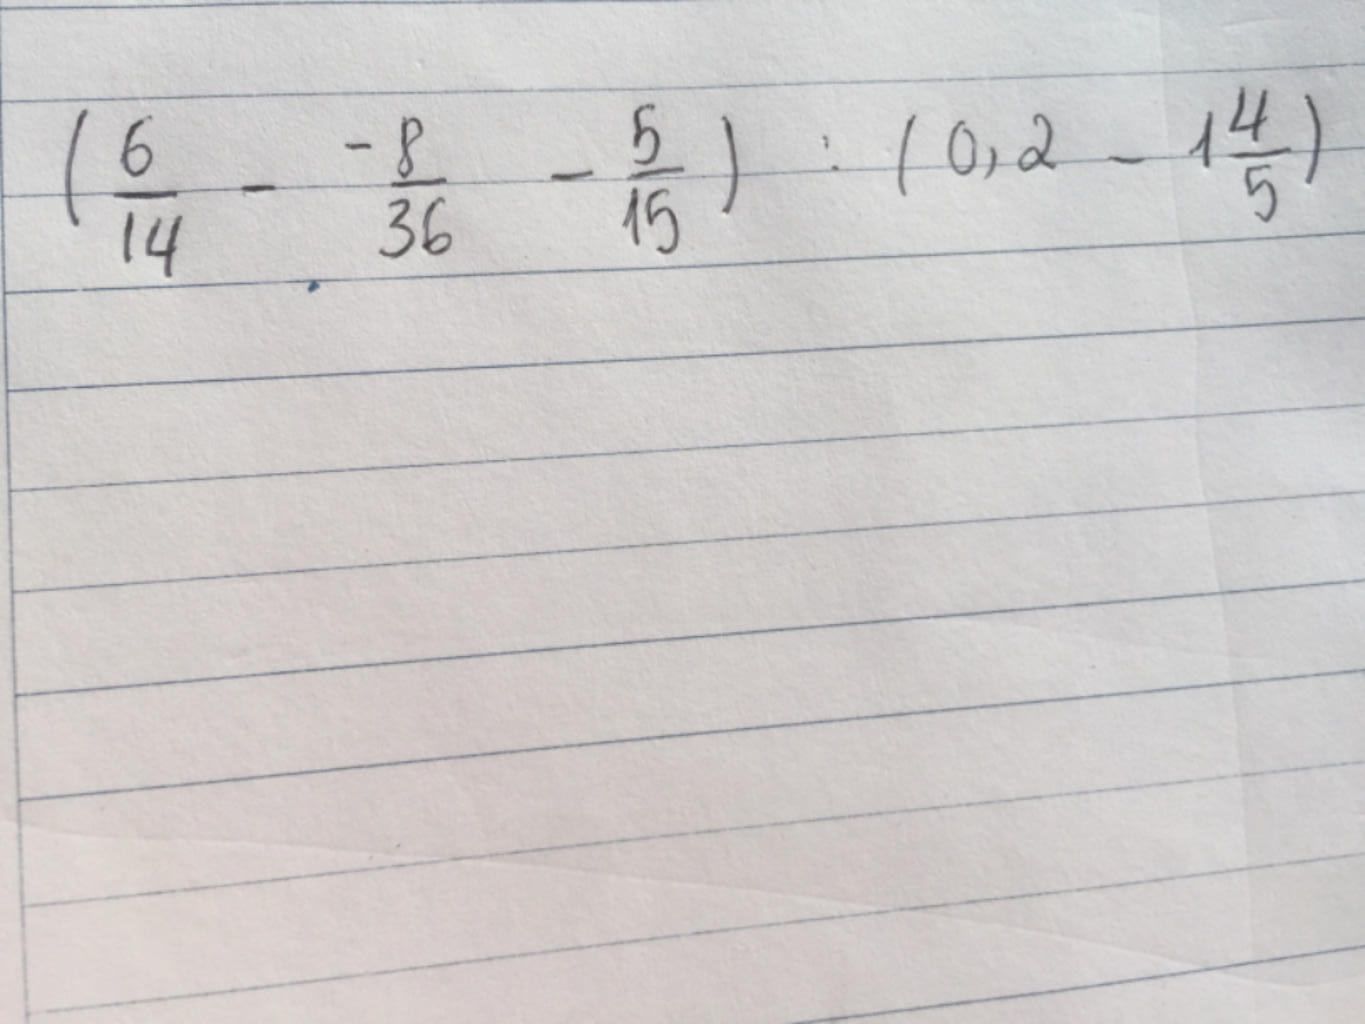 (6/14 - -8/36 - 5/15) : (0,2 - 1 4/5)